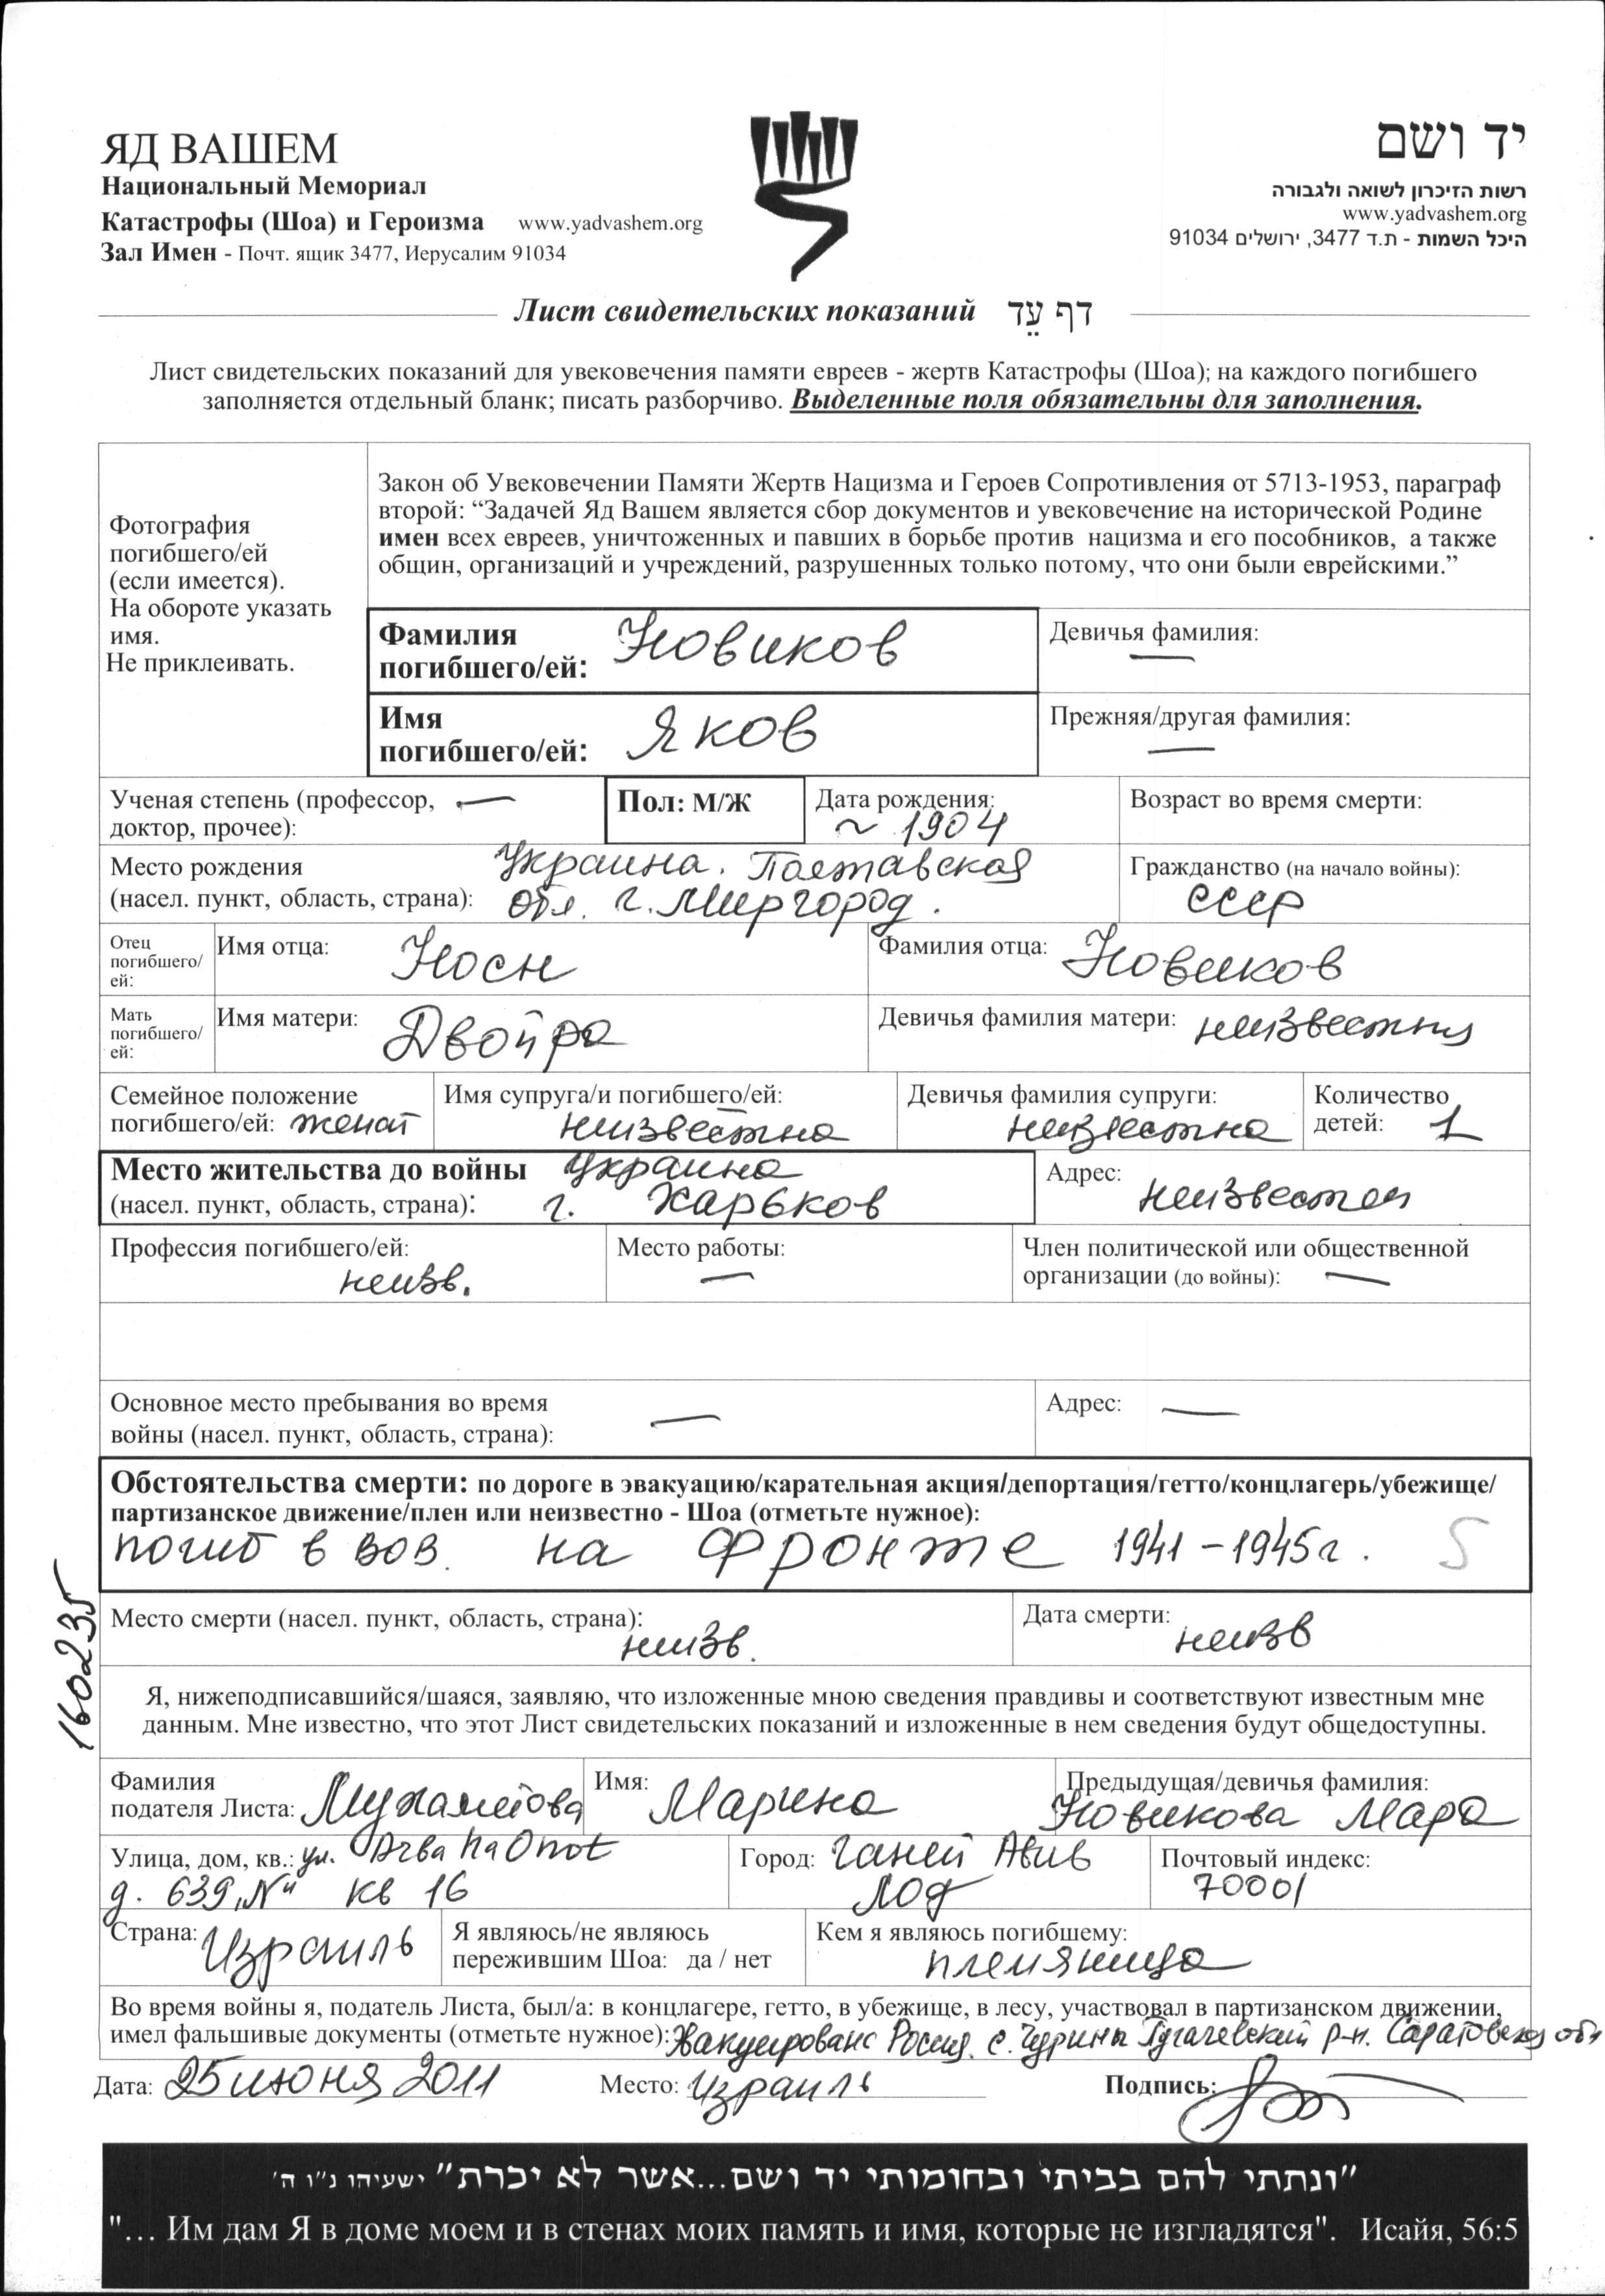 ЯД ВАШЕМ
Национальный Мемориал
Катастрофы (Шоа) и Героизма www.yadvashem.org
Зал Имен - Почт. ящик 3477, Иерусалим 91034
יד ושם
רשות הזיכרון לשואה ולגבורה
www.yadvashem.org
היכל השמות - ת.ד 3477, ירושלים 91034
Лист свидетельских показаний דף עֵד
Лист свидетельских показаний для увековечения памяти евреев - жертв Катастрофы (Шоа); на каждого погибшего
заполняется отдельный бланк; писать разборчиво. Выделенные поля обязательны для заполнения.
Фотография
погибшего/ей
(если имеется).
На обороте указать
имя.
Не приклеивать.
Закон об Увековечении Памяти Жертв Нацизма и Героев Сопротивления от 5713-1953, параграф
второй: “Задачей Яд Вашем является сбор документов и увековечение на исторической Родине
имен всех евреев, уничтоженных и павших в борьбе против нацизма и его пособников, а также
общин, организаций и учреждений, разрушенных только потому, что они были еврейскими.”
Фамилия
погибшего/ей: Новиков
Девичья фамилия:
—
Имя
погибшего/ей: Яков
Прежняя/другая фамилия:
—
Ученая степень (профессор, —
доктор, прочее):
Пол: М/Ж
Дата рождения:
~ 1904
Возраст во время смерти:
Место рождения Украина. Полтавская
(насел. пункт, область, страна): обл. г. Миргород.
Гражданство (на начало войны):
СССР
Отец
погибшего/
ей:
Имя отца: Носн
Фамилия отца: Новиков
Мать
погибшего/
ей:
Имя матери: Двойра
Девичья фамилия матери: неизвестна
Семейное положение
погибшего/ей: женат
Имя супруга/и погибшего/ей:
неизвестна
Девичья фамилия супруги:
неизвестна
Количество
детей: 1
Место жительства до войны Украина
(насел. пункт, область, страна): г. Харьков
Адрес:
неизвестен
Профессия погибшего/ей:
неизв.
Место работы:
—
Член политической или общественной
организации (до войны): —
Основное место пребывания во время
войны (насел. пункт, область, страна): —
Адрес: —
Обстоятельства смерти: по дороге в эвакуацию/карательная акция/депортация/гетто/концлагерь/убежище/
партизанское движение/плен или неизвестно - Шоа (отметьте нужное):
погиб в ВОВ. на фронте 1941-1945г. S
160235
Место смерти (насел. пункт, область, страна):
неизв.
Дата смерти:
неизв
Я, нижеподписавшийся/шаяся, заявляю, что изложенные мною сведения правдивы и соответствуют известным мне
данным. Мне известно, что этот Лист свидетельских показаний и изложенные в нем сведения будут общедоступны.
Фамилия
подателя Листа: Мухаметова
Имя: Марина
Предыдущая/девичья фамилия:
Новикова Мара
Улица, дом, кв.: ул. Arba haOnot
д. 639, кв 16
Город: Ганей Авив
Лод
Почтовый индекс:
70001
Страна: Израиль
Я являюсь/не являюсь
пережившим Шоа: да / нет
Кем я являюсь погибшему:
племяница
Во время войны я, податель Листа, был/а: в концлагере, гетто, в убежище, в лесу, участвовал в партизанском движении,
имел фальшивые документы (отметьте нужное): Эвакуирована Россия. с. р-н. Саратовская обл
Дата: 25 июня 2011 Место: Израиль Подпись:
"ונתתי להם בביתי ובחומותי יד ושם...אשר לא יכרת" ישעיהו נ"ו ה'
"... Им дам Я в доме моем и в стенах моих память и имя, которые не изгладятся". Исайя, 56:5